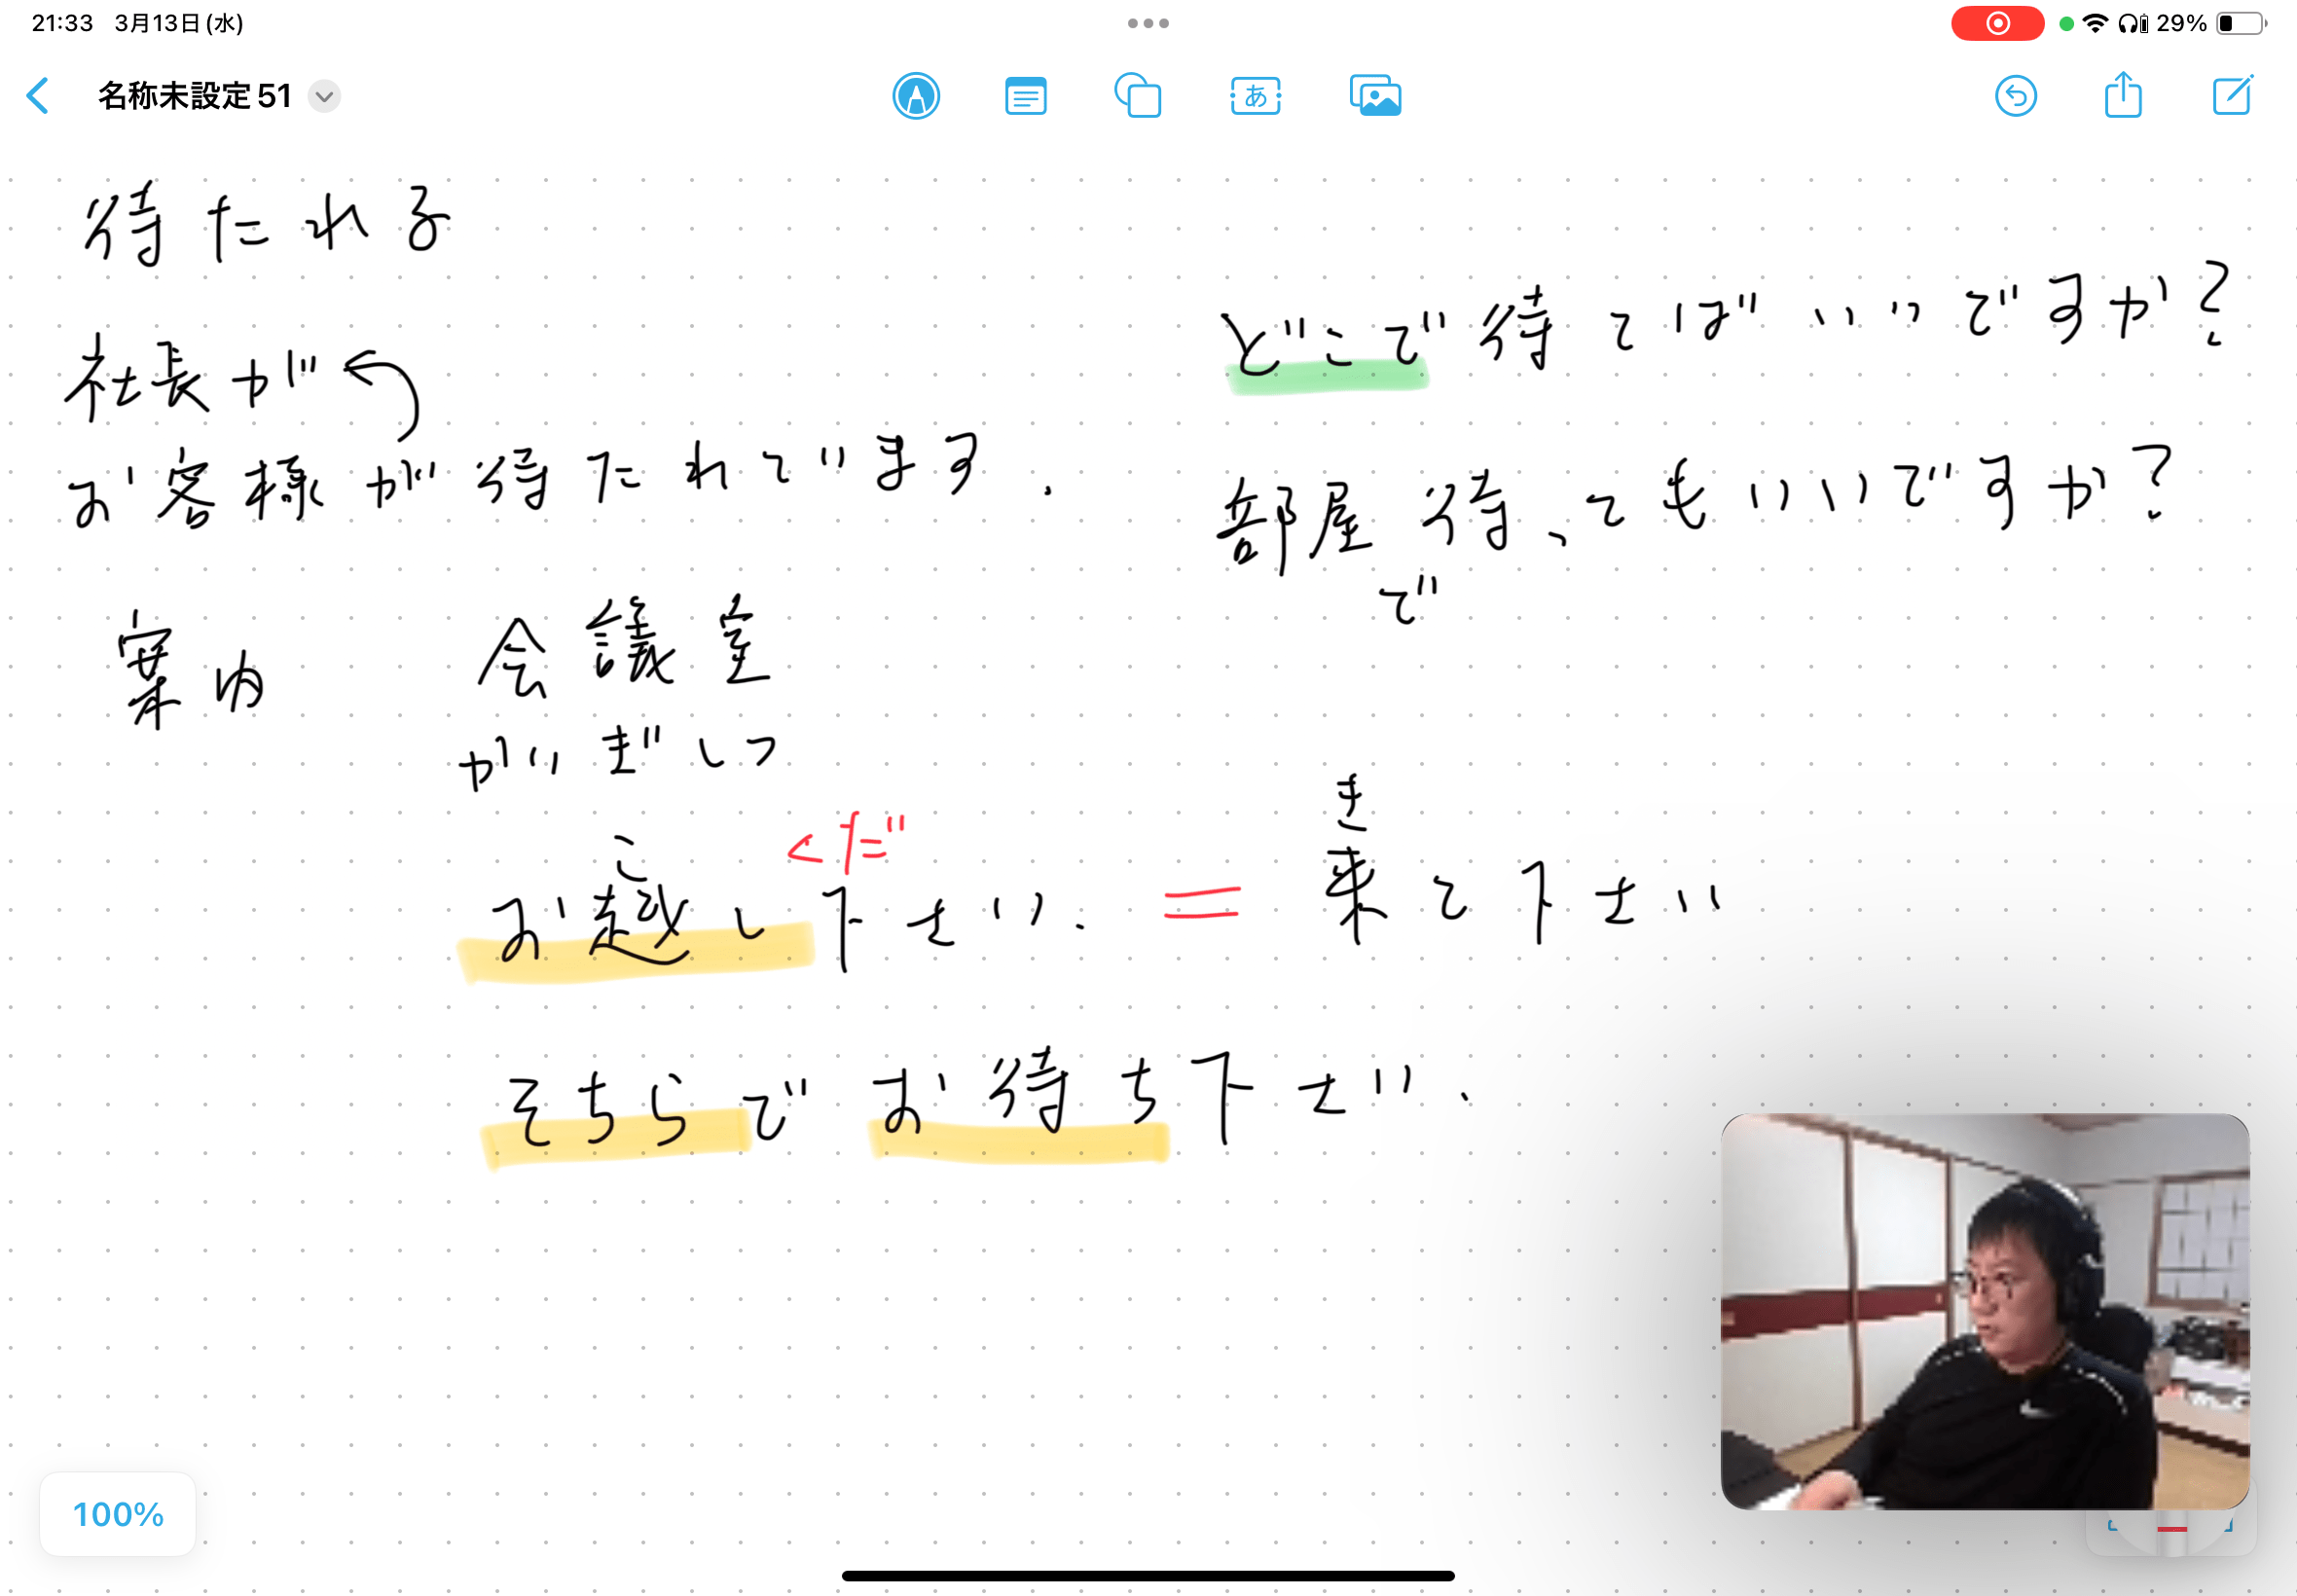 21:33 3月13日(水)
29%
名称未設定 51
あ
待たれる
社長が
お客様が待たれています.
案内
会議室
かいぎしつ
どこで待てばいいですか?
部屋 待ってもいいですか?
で
こ
くだ
き
お越し下さい. = 来て下さい
そちらでお待ち下さい.
100%